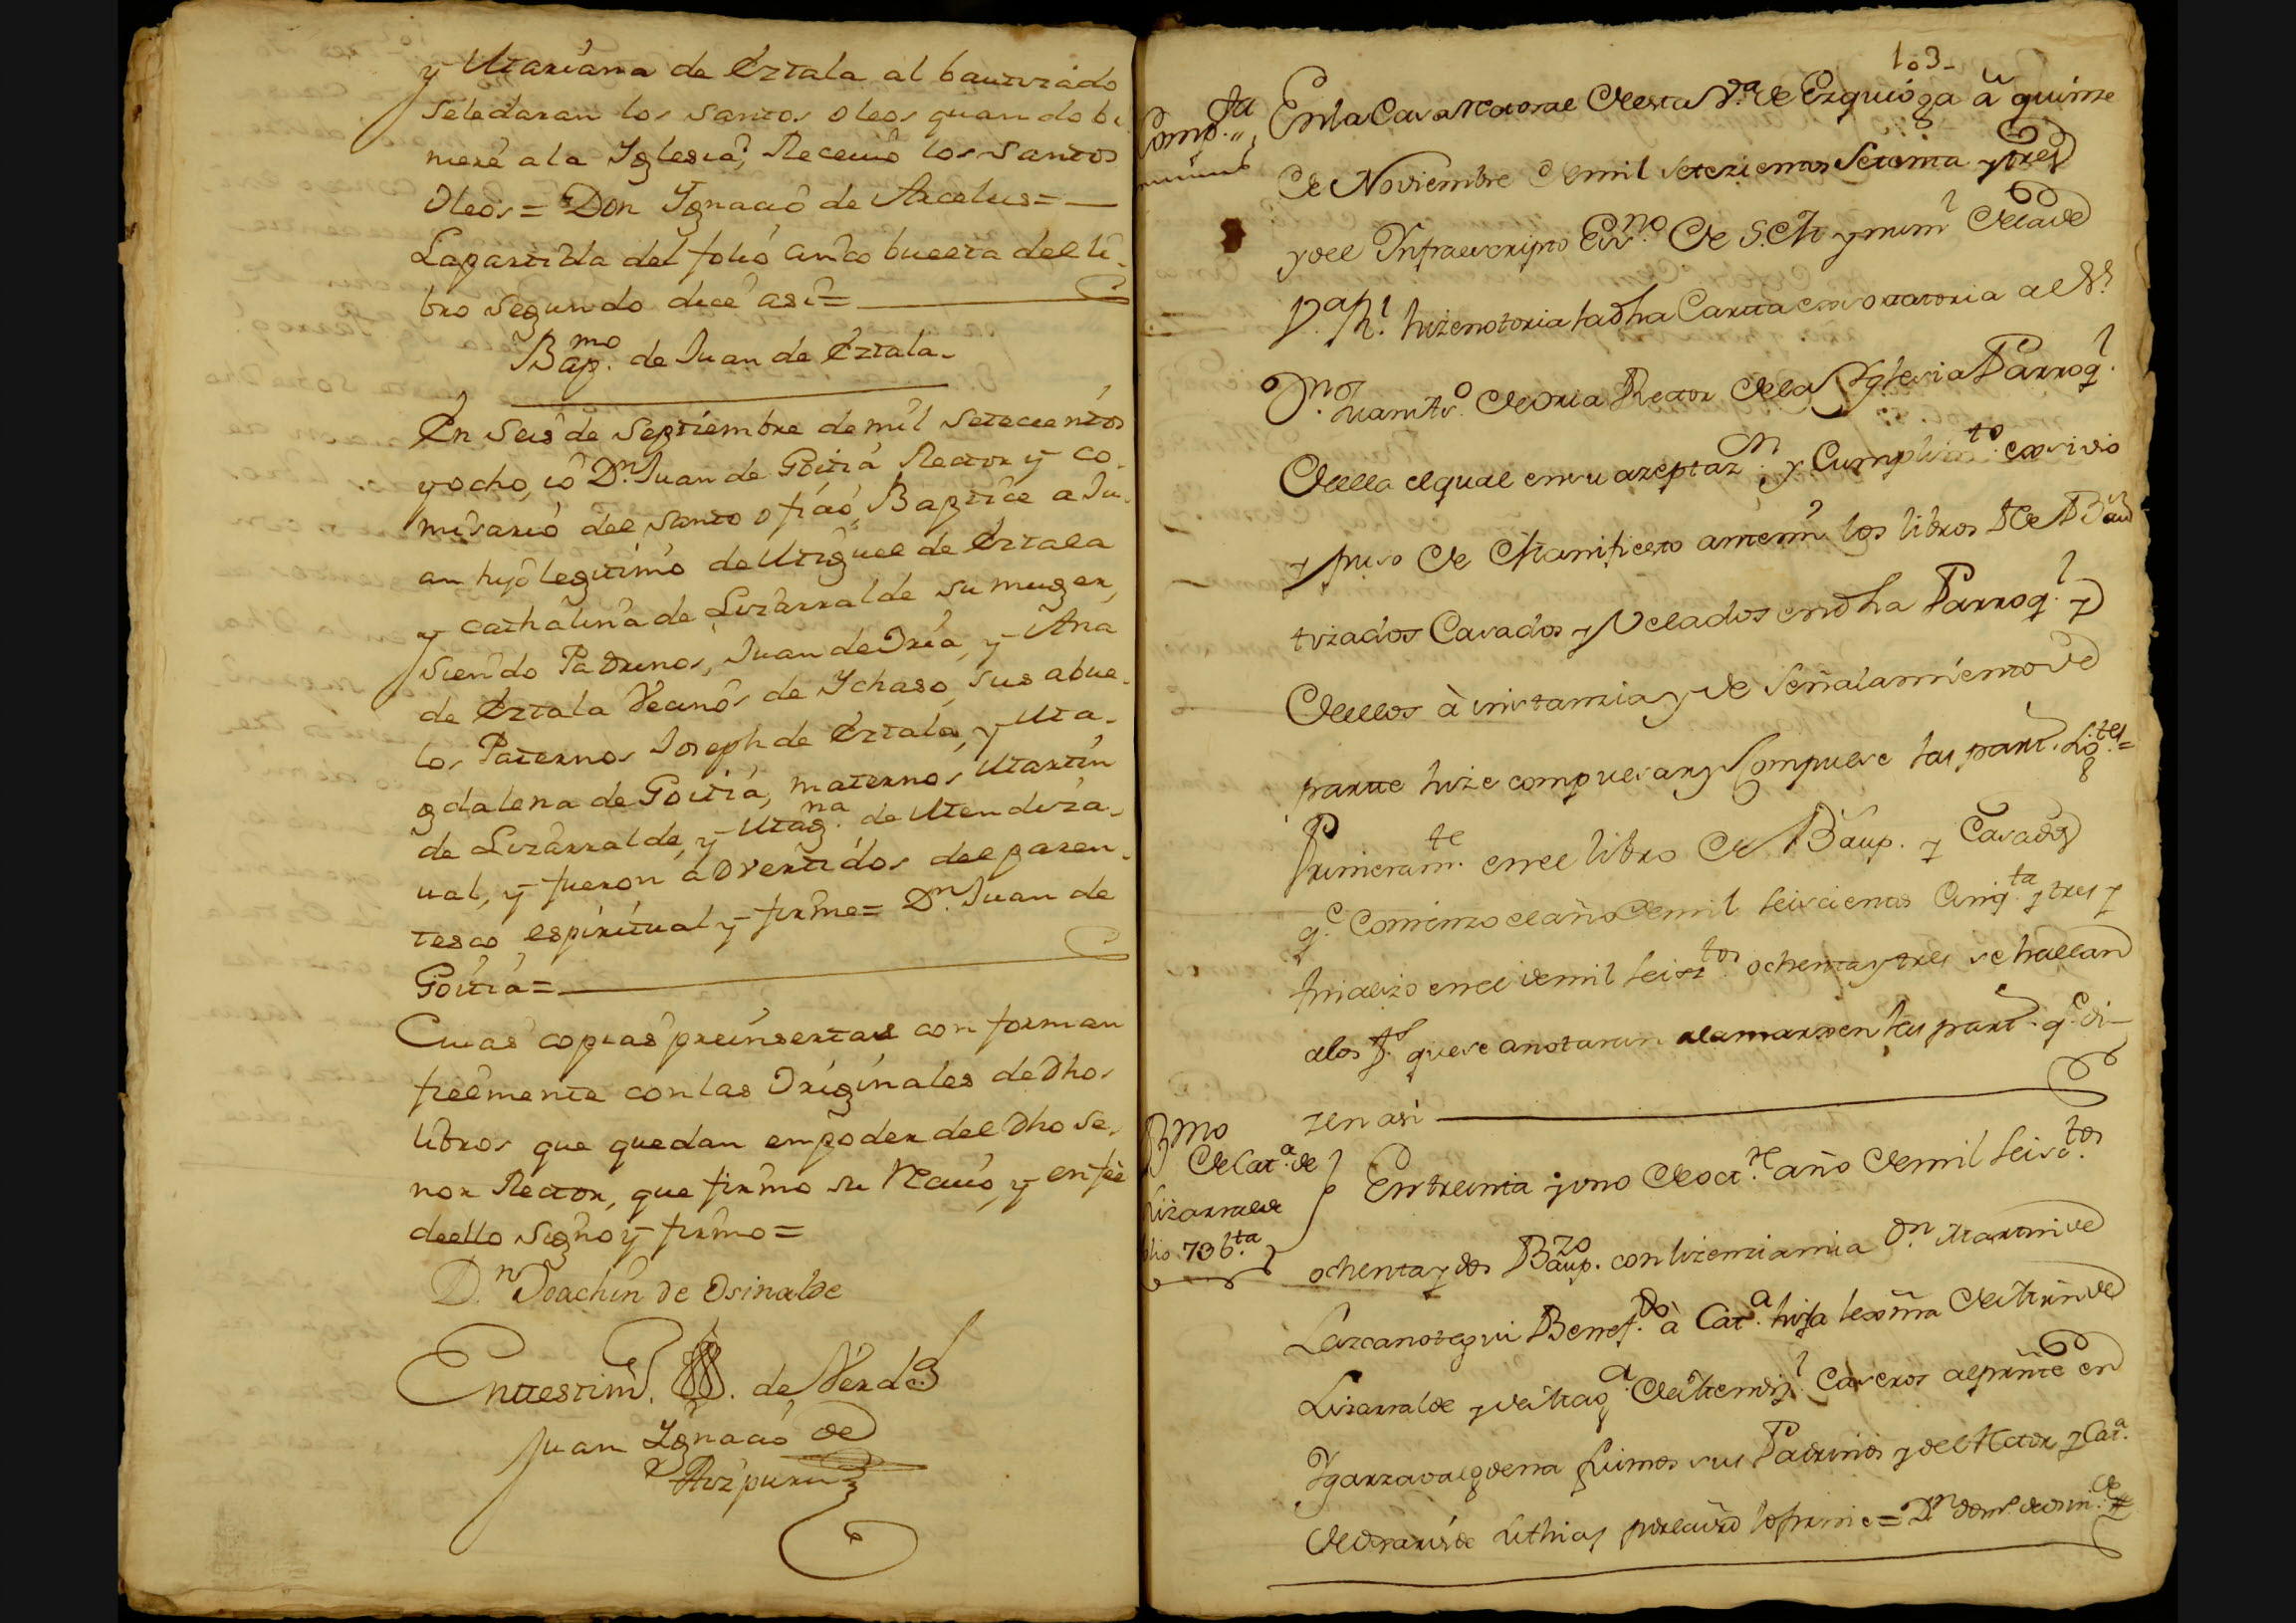 y Mariana de Eztala al bautizado
seledaran los santos oleos quando bi
niere ala Yglesia, Recevio los santos
Oleos = Don Ygnacio de Arcelus =
La partida del folio cinco buelta del li-
bro segundo dice asi =
Bap.mo de Juan de Eztala.
En seis de Septiembre de mil setecientos
y ocho, io Dn. Juan de Goitia Rector y co-
misario del santo ofizio, Baptice a Ju-
an hijo legitimo de Miguel de Eztala
y cathalina de Lizarralde su muger,
siendo Padrinos, Juan de Oria, y Ana
de Eztala Vecinos de Ychaso, sus abue-
los Paternos Joseph de Eztala, y Ma-
gdalena de Goitia, maternos Martin
de Lizarralde, y Mag.na de Mendiza-
ual, y fueron advertidos del paren-
tesco espiritual y firme = Dn. Juan de
Goitia =
Cuias copias preinsertas conforman
fielmente con las Originales de dhos
libros que quedan empoder del dho se-
nor Rector, que firmo su Mrd, y en fee
deello signo y firmo =
Dn. Joachin de Osinalde
Entestim.o de Verdad
Juan Ygnacio de
Aizpuru
103-
En la Casa Rectoral de esta V.a de Ezquioga à quinze
de Noviembre de mil setezientos setenta y tres
yo el Infraescripto Ess.no de S.M. y num.l de la de
V.a R.l hize notoria la dha Carta exortatoria al S.r
D.n Juan de Oria Rector de la Yglesia Parroq.l
de ella el qual en su azeptaz.n y Cumplim.to exsivio
y puso de Manifiesto ante mi los libros de Bau
tizados Casados y Velados en dha Parroq.l y
de ellos à instanzia y de señalamiento de
parte hize compulsar y Compulse las part.s sig.tes =
Primeram.te en el libro de Baup. y Casados
q.e Comienzo el año de mil seiscientos Cinq.ta y tres y
finalizo en el de mil seisz.tos ochenta y tres se hallan
a los f.s que se anotaran a la margen las part.s q.e di-
zen asi
B.mo
de Cat.a de
Lizarralde
folio 73 b.ta
En treinta y uno de oct.re año de mil seisc.tos
ochenta y dos Baup.zo con lizenzia mia D.n Martin de
Lazcanotegui Benef.do à Cat.a hija lexma de Mrn de
Lizarralde y de Mag.a de Mendiz.l Caseros al prnte en
Ygarzavalgoena fuimos sus Padrinos yo el Rector y Cat.a